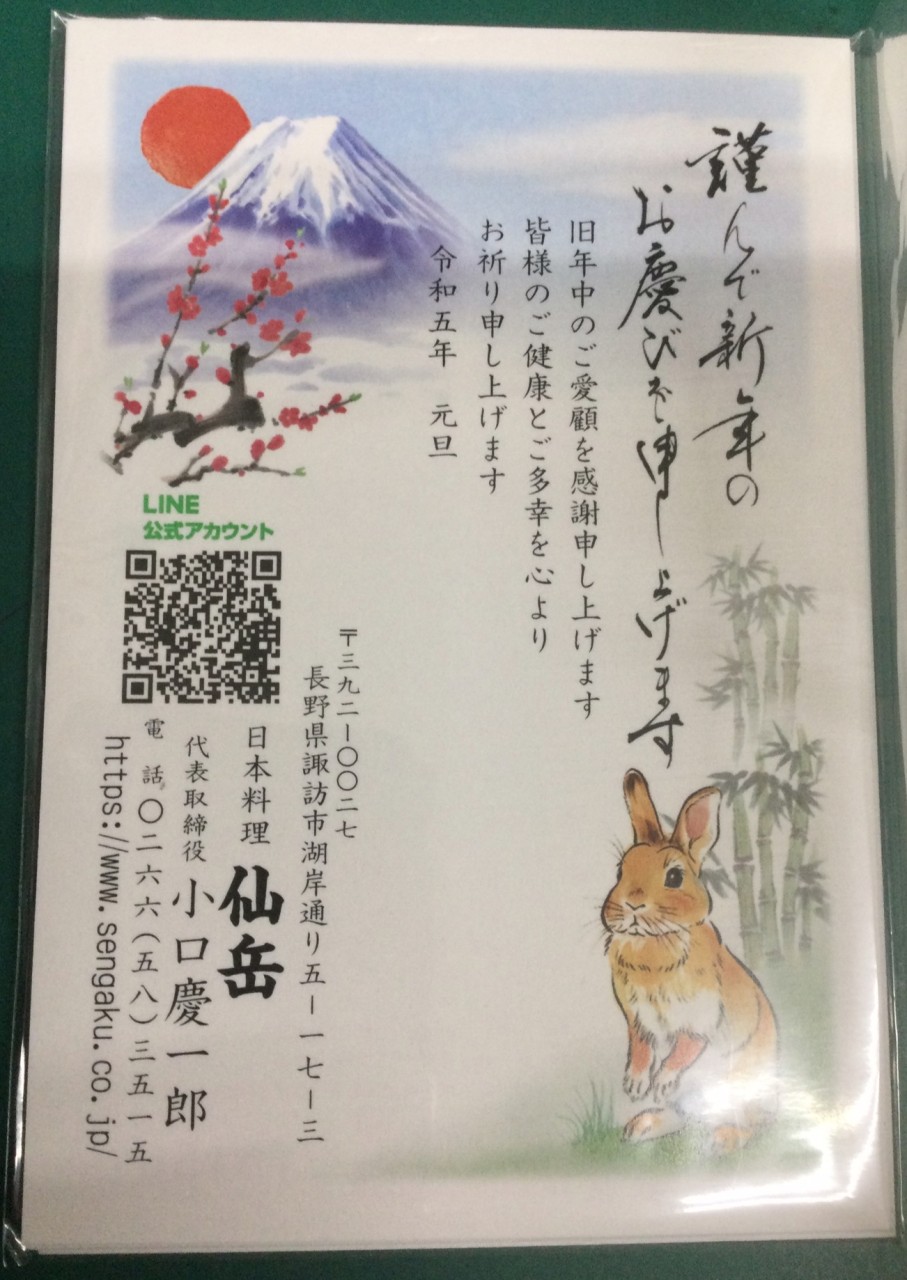 謹んで新年の
お慶びを申し上げます
旧年中のご愛顧を感謝申し上げます
皆様のご健康とご多幸を心より
お祈り申し上げます
令和五年 元旦
〒三九二－〇〇二七
長野県諏訪市湖岸通り五－一七－三
日本料理 仙岳
代表取締役 小口慶一郎
電話 〇二六六（五八）三五一五
https://www.sengaku.co.jp/
LINE
公式アカウント